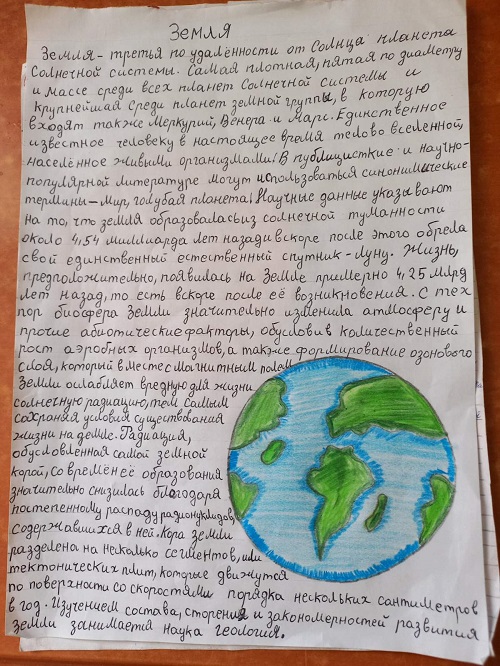 Земля
Земля - третья по удалённости от Солнца планета
Солнечной системы. Самая плотная, пятая по диаметру
и массе среди всех планет Солнечной системы и
крупнейшая среди планет земной группы, в которую
входят также Меркурий, Венера и Марс. Единственное
известное человеку в настоящее время тело во вселенной,
населённое живыми организмами! В публицистике и научно-
популярной литературе могут использоваться синонимические
термины - мир, голубая планета! Научные данные указывают
на то, что земля образовалась из солнечной туманности
около 4,54 миллиарда лет назад и вскоре после этого обрела
свой единственный естественный спутник - Луну. Жизнь,
предположительно, появилась на Земле примерно 4,25 млрд
лет назад, то есть вскоре после её возникновения. С тех
пор биосфера Земли значительно изменила атмосферу и
прочие абиотические факторы, обусловив количественный
рост аэробных организмов, а также формирование озонового
слоя, который вместе с магнитным полем
Земли ослабляет вредную для жизни
солнечную радиацию, тем самым
сохраняя условия существования
жизни на демле. Радиация,
обусловленная самой земной
корой, со времён её образования
значительно снизилась благодаря
постепенному распаду радионуклидов,
содержавшихся в ней. Кора земли
разделена на несколько сегментов, или
тектонических плит, которые движутся
по поверхности со скоростями порядка нескольких сантиметров
в год. Изучением состава, сторения и закономерностей развития
Земли занимается наука геология.